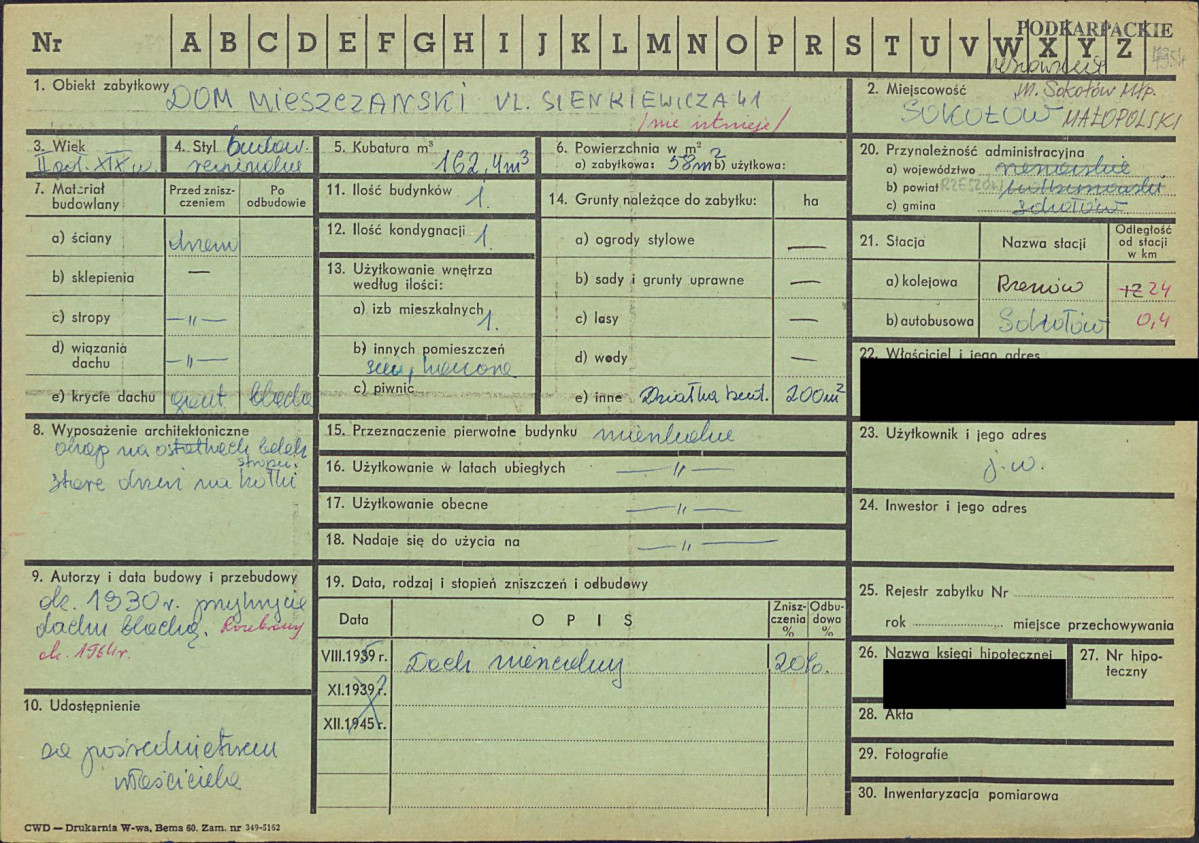 Nr A B C D E F G H I J K L M N O P R S T U V W X Y Z
PODKARPACKIE
rzeszowskie
1. Obiekt zabytkowy DOM MIESZCZAŃSKI UL. SIENKIEWICZA 41
/nie istnieje/
2. Miejscowość m. Sokołów Młp.
SOKOŁÓW MAŁOPOLSKI
3. Wiek
II poł. XIX w.
4. Styl budow.
regionalne
5. Kubatura m³
162,4m³
6. Powierzchnia w m²
a) zabytkowa: 58m² b) użytkowa:
7. Materiał budowlany
Przed zniszczeniem
Po odbudowie
a) ściany drzewo
b) sklepienia —
c) stropy —"—
d) wiązania dachu —"—
e) krycie dachu gont blacha
8. Wyposażenie architektoniczne
okap na ostatkach belek
stropu.
stare drzwi na kołki
9. Autorzy i data budowy i przebudowy
ok. 1930 r. przykrycie
dachu blachą. Rozebrany
ok. 1964r.
10. Udostępnienie
za pośrednictwem
właściciela
11. Ilość budynków 1.
12. Ilość kondygnacji 1.
13. Użytkowanie wnętrza
według ilości:
a) izb mieszkalnych 1.
b) innych pomieszczeń
sień,
c) piwnic
14. Grunty należące do zabytku: ha
a) ogrody stylowe —
b) sady i grunty uprawne —
c) lasy —
d) wody —
e) inne Działka bud. 200m²
15. Przeznaczenie pierwotne budynku mieszkalne
16. Użytkowanie w latach ubiegłych —"—
17. Użytkowanie obecne —"—
18. Nadaje się do użycia na —"—
19. Data, rodzaj i stopień zniszczeń i odbudowy
Data
OPIS
Zniszczenia %
Odbudowa %
VIII.1939 r. Dach nieszczelny 20%.
XI.1939 r.
XII.1945 r.
20. Przynależność administracyjna
a) województwo rzeszowskie
b) powiat RZESZÓW kolbuszowski
c) gmina Sokołów
21. Stacja
Nazwa stacji
Odległość
od stacji
w km
a) kolejowa Rzeszów 12 24
b) autobusowa Sokołów 0,4
22. Właściciel i jego adres
23. Użytkownik i jego adres
j.w.
24. Inwestor i jego adres
25. Rejestr zabytku Nr
rok miejsce przechowywania
26. Nazwa księgi hipotecznej
27. Nr hipoteczny
28. Akta
29. Fotografie
30. Inwentaryzacja pomiarowa
CWD — Drukarnia W-wa, Bema 60. Zam. nr 349-5162